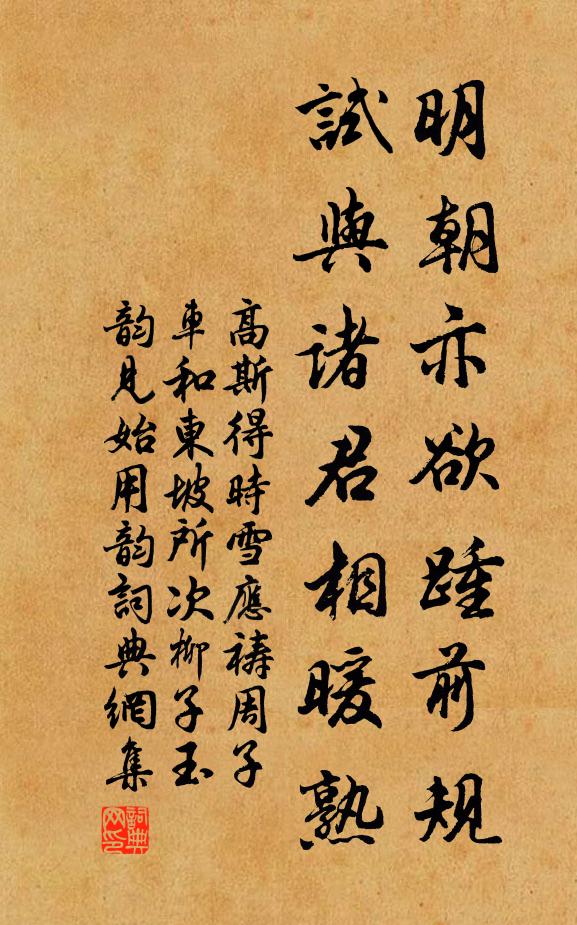 明朝亦欲踵前規
試與諸君相暖熟
高斯得時雪應禱周子
車和東坡所次柳子玉
韵見始用韵詞典網集
詞典網印